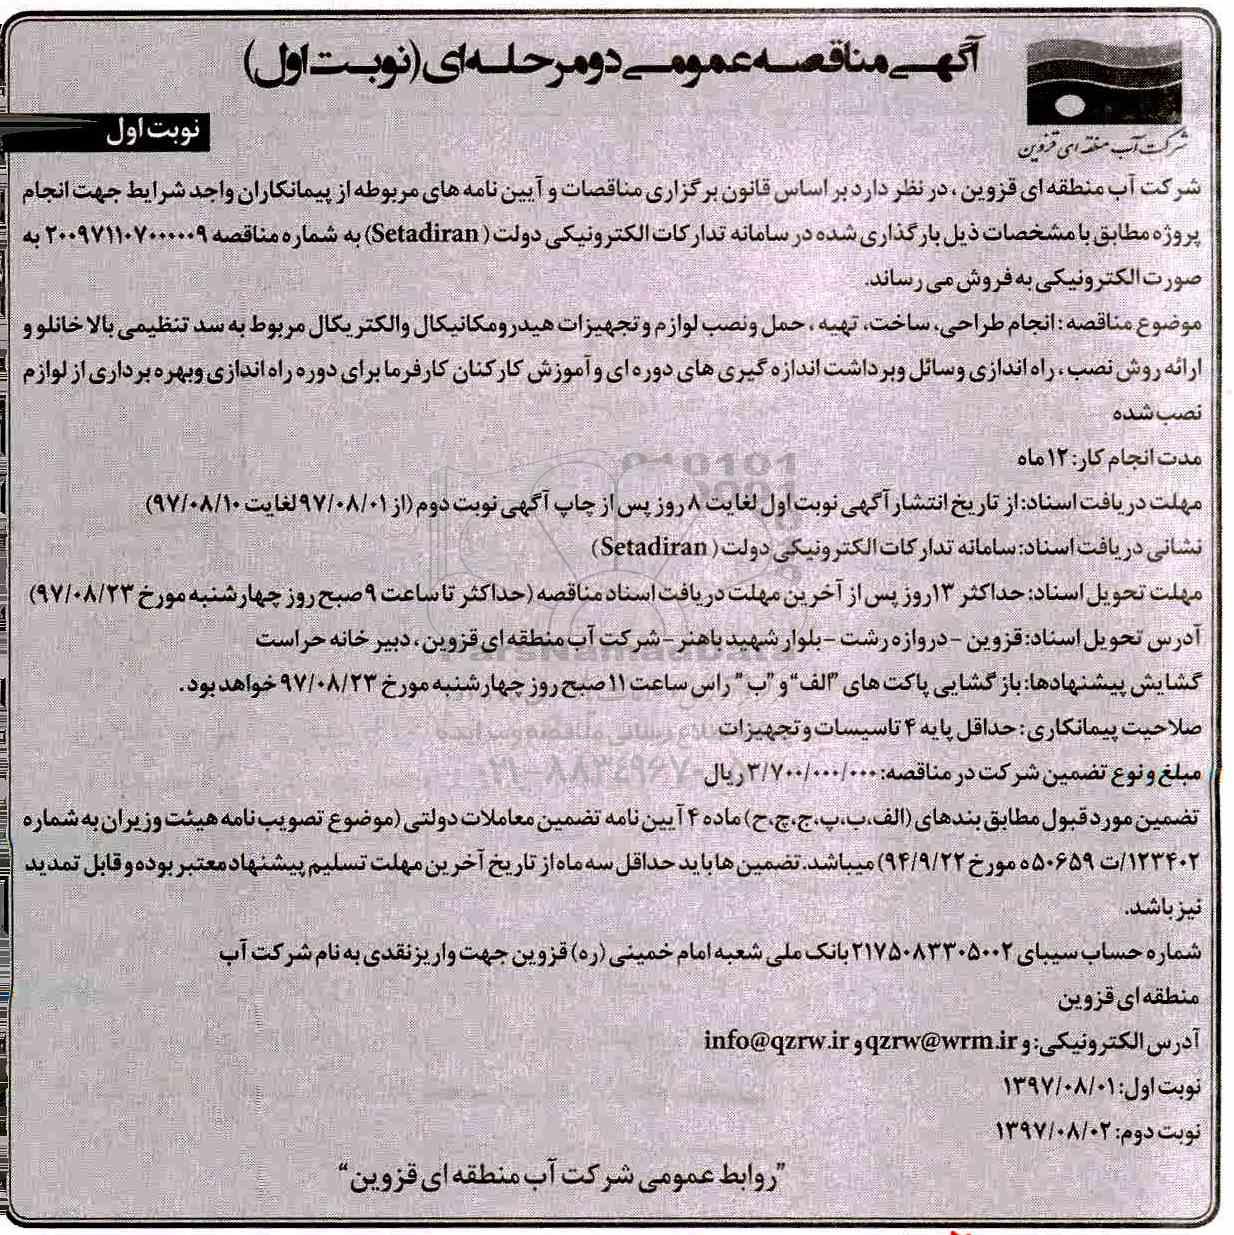 آگهی مناقصه عمومی دو مرحله ای (نوبت اول)
شرکت آب منطقه ای قزوین
نوبت اول
شرکت آب منطقه ای قزوین ، در نظر دارد بر اساس قانون برگزاری مناقصات و آیین نامه های مربوطه از پیمانکاران واجد شرایط جهت انجام
پروژه مطابق با مشخصات ذیل بارگذاری شده در سامانه تدارکات الکترونیکی دولت ( Setadiran) به شماره مناقصه ۲۰۰۹۷۱۱۰۷۰۰۰۰۰۹ به
صورت الکترونیکی به فروش می رساند.
موضوع مناقصه : انجام طراحی، ساخت، تهیه ، حمل ونصب لوازم و تجهیزات هیدرومکانیکال والکتریکال مربوط به سد تنظیمی بالا خانلو و
ارائه روش نصب ، راه اندازی وسائل وبرداشت اندازه گیری های دوره ای و آموزش کارکنان کارفرما برای دوره راه اندازی وبهره برداری از لوازم
نصب شده
مدت انجام کار: ۱۲ماه
مهلت دریافت اسناد: از تاریخ انتشار آگهی نوبت اول لغایت ۸ روز پس از چاپ آگهی نوبت دوم (از ۹۷/۰۸/۰۱ لغایت ۹۷/۰۸/۱۰)
نشانی دریافت اسناد: سامانه تدارکات الکترونیکی دولت ( Setadiran)
مهلت تحویل اسناد: حداکثر ۱۳روز پس از آخرین مهلت دریافت اسناد مناقصه (حداکثر تا ساعت ۹ صبح روز چهارشنبه مورخ ۹۷/۰۸/۲۳)
آدرس تحویل اسناد: قزوین - دروازه رشت - بلوار شهید باهنر - شرکت آب منطقه ای قزوین ، دبیر خانه حراست
گشایش پیشنهادها: بازگشایی پاکت های "الف" و "ب" راس ساعت ۱۱صبح روز چهارشنبه مورخ ۹۷/۰۸/۲۳ خواهد بود .
صلاحیت پیمانکاری : حداقل پایه ۴ تاسیسات و تجهیزات
مبلغ و نوع تضمین شرکت در مناقصه: ۳/۷۰۰/۰۰۰/۰۰۰ ریال
تضمین مورد قبول مطابق بندهای (الف،ب،پ،ج،چ،ح) ماده ۴ آیین نامه تضمین معاملات دولتی (موضوع تصویب نامه هیئت وزیران به شماره
۱۲۳۴۰۲/ت ۵۰۶۵۹ه مورخ ۹۴/۹/۲۲) میباشد. تضمین ها باید حداقل سه ماه از تاریخ آخرین مهلت تسلیم پیشنهاد معتبر بوده و قابل تمدید
نیز باشد.
شماره حساب سیبای ۲۱۷۵۰۸۳۳۰۵۰۰۲ بانک ملی شعبه امام خمینی (ره) قزوین جهت واریز نقدی به نام شرکت آب
منطقه ای قزوین
آدرس الکترونیکی: و qzrw@wrm.ir و info@qzrw.ir
نوبت اول: ۱۳۹۷/۰۸/۰۱
نوبت دوم: ۱۳۹۷/۰۸/۰۲
"روابط عمومی شرکت آب منطقه ای قزوین"